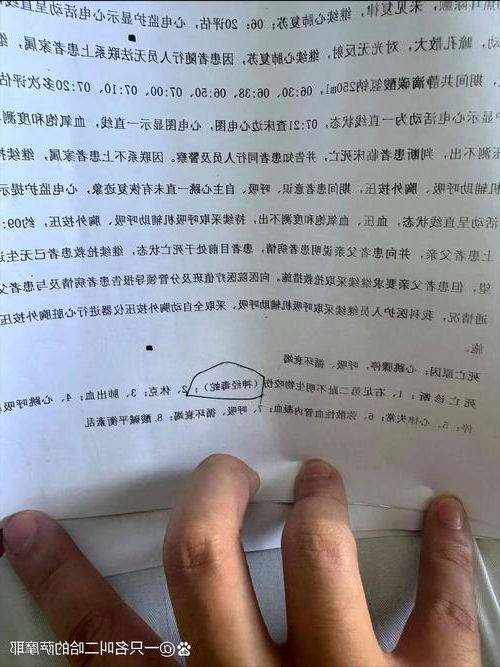 焦耳除颤，未见复律，继续心肺复苏；06：20评估，心电监护显示心电活动呈直线
动，瞳孔散大，对光无反射，继续心肺复苏。因患者随行人员无法联系上患者家属，继
，期间共静滴碳酸氢钠250ml，06:30、06:38、06:50、07:00、07:10、07:20多次评估
护显示心电活动为一直线状态，07:21查床边心电图，心电图显示一直线，血氧饱和度测
压测不出，判断患者临床死亡，并告知患者同行人员及警察。因联系不上患者家属，继续
机辅助呼吸、胸外按压，期间患者意识、呼吸、自主心跳一直未有恢复迹象，心电监护提示
活动呈直线状态，血压、血氧饱和度测不出，持续采取呼吸机辅助呼吸、胸外按压，约09:
上患者父亲，并向患者父亲说明患者病情，患者目前处于死亡状态，继续抢救患者已无生
望，但患者父亲要求继续采取抢救措施。向医院医疗值班及分管领导报告患者病情及与患者父
通情况，我科医护人员继续采取呼吸机辅助呼吸、采取全自动胸外按压仪器进行心脏胸外按压
施。
死亡原因：心跳骤停，呼吸、循环衰竭
死亡诊断：1、右足第二趾不明生物咬伤（神经毒蛇）；2、休克；3、肺出血；4、心跳呼吸
停；5、心律失常；6、弥散性血管内凝血；7、呼吸、循环衰竭；8.酸碱平衡紊乱
@一只名叫二哈的萨摩耶